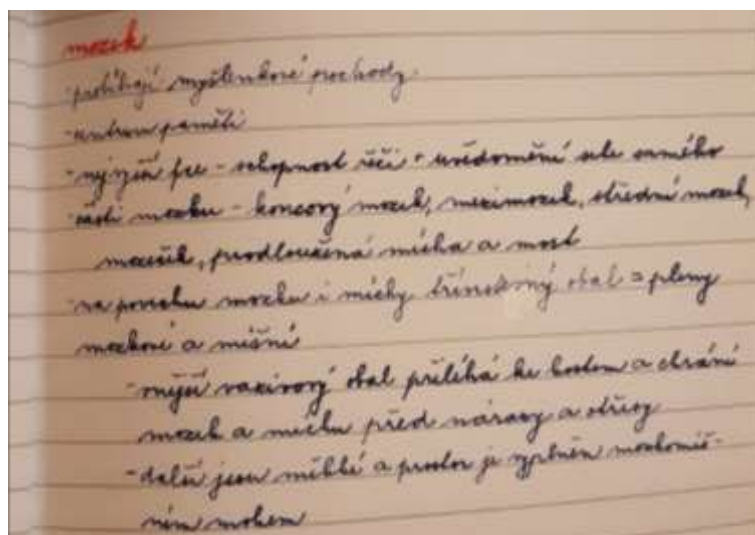 mozek
-probíhají myšlenkové pochody
-centrum paměti
-nejvyšší fce - schopnost řeči + uvědomění sebe samého
-části mozku - koncový mozek, mezimozek, střední mozek,
mozeček, prodloužená mícha a most
-na povrchu mozku i míchy třívrstevný obal = pleny
mozkové a míšní
-vnější vazivový obal přiléhá ke kostem a chrání
mozek a míchu před nárazy a otřesy
-další jsou měkké a prostor je vyplněn mozkomíš-
ním mokem